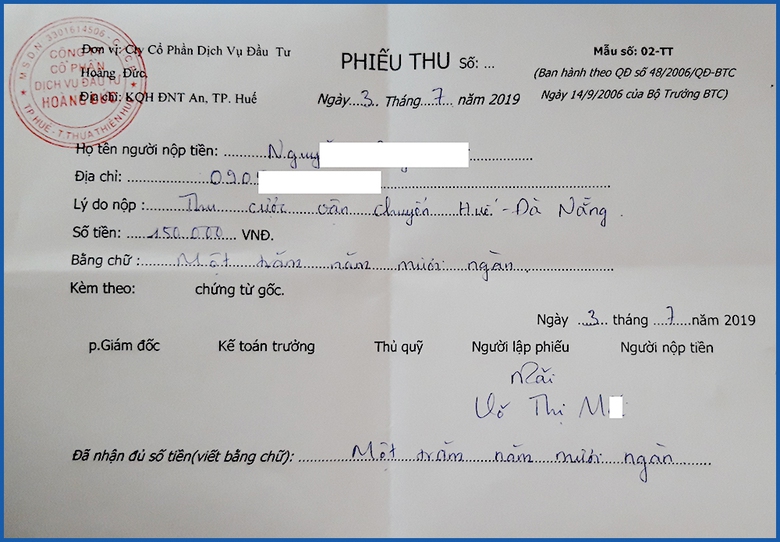 M.S.D.N: 3301614506 - C.T.C.P
CÔNG TY
CỔ PHẦN
DỊCH VỤ ĐẦU TƯ
HOÀNG ĐỨC
TP.HUẾ - T.THỪA THIÊN HUẾ
Đơn vị: Cty Cổ Phần Dịch Vụ Đầu Tư
Hoàng Đức.
Địa chỉ: KQH ĐNT An, TP. Huế
PHIẾU THU Số: ...
Ngày 3 Tháng 7 năm 2019
Mẫu số: 02-TT
(Ban hành theo QĐ số 48/2006/QĐ-BTC
Ngày 14/9/2006 của Bộ Trưởng BTC)
Họ tên người nộp tiền:
Địa chỉ:
Lý do nộp : Thu cước vận chuyển Huế - Đà Nẵng.
Số tiền: 150.000 VNĐ.
Bằng chữ : Một trăm năm mươi ngàn.
Kèm theo: chứng từ gốc.
Ngày 3 tháng 7 năm 2019
p.Giám đốc Kế toán trưởng Thủ quỹ Người lập phiếu Người nộp tiền
Võ Thị
Đã nhận đủ số tiền(viết bằng chữ): Một trăm năm mươi ngàn